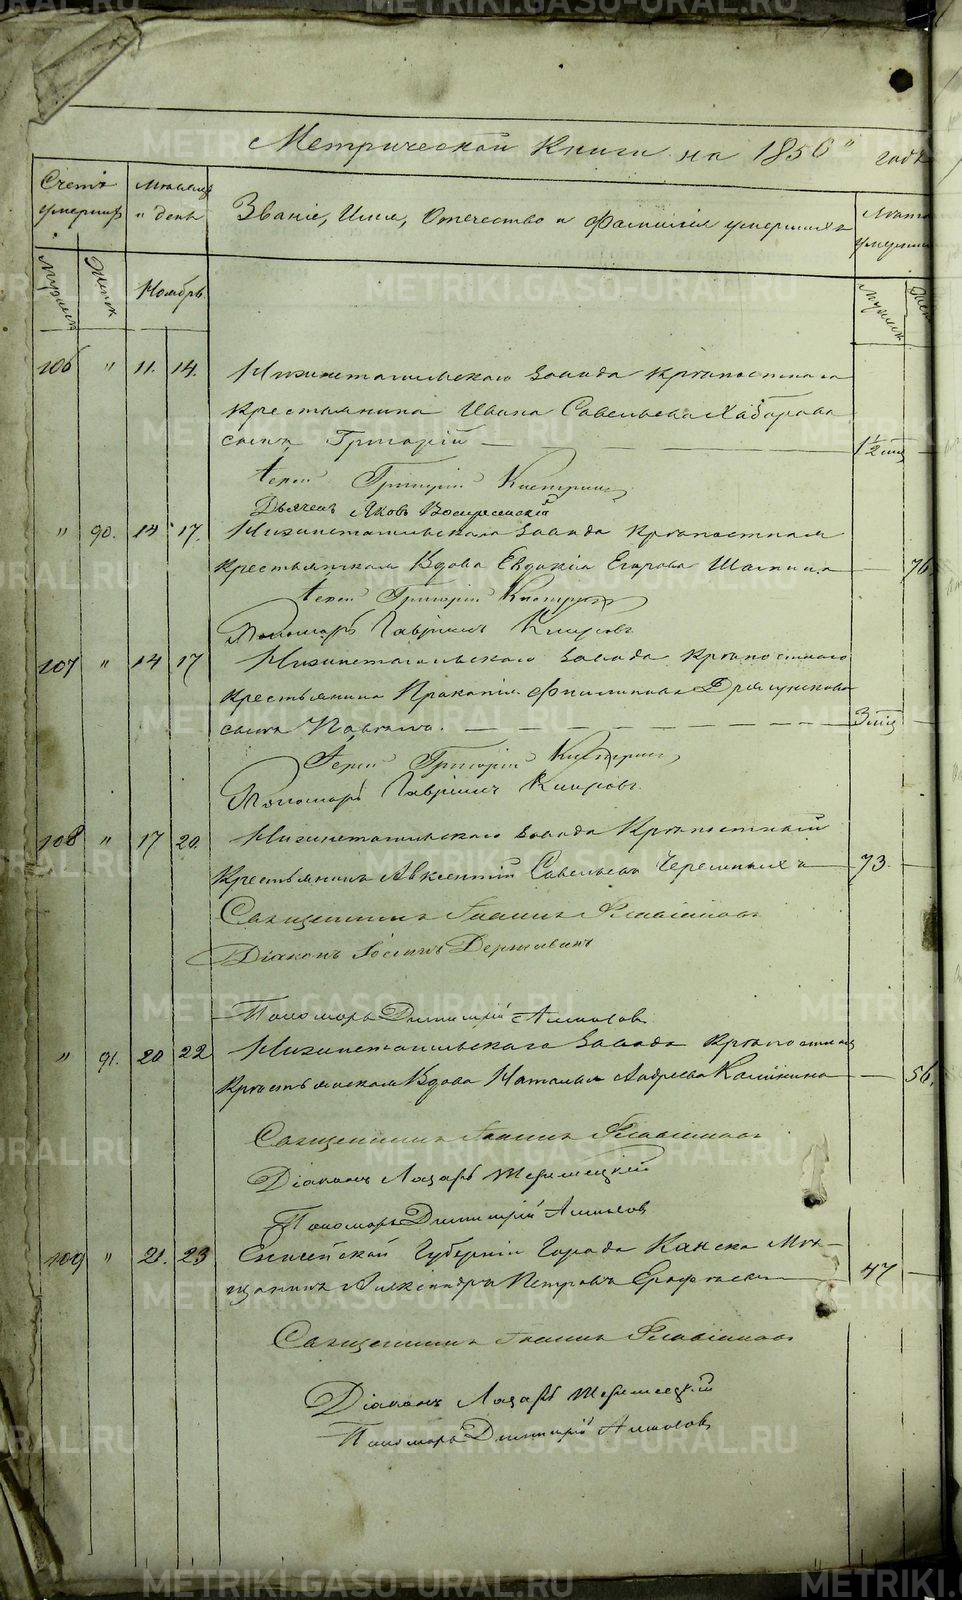 Метрической Книги на 1856 годъ
Счетъ умершихъ
Мѣсяцъ и день
Званіе, Имя, Отечество и Фамилія умершихъ
Лѣта умершихъ
Мужеск
Женск
Ноябрь
Мужеск
Жен
106 " 11. 14. Нижнетагильскаго Завода крѣпостнаго
крестьянина Ивана Савельева Хабарова
сынъ Григорій 1½ мѣс
Іерей Григорій
Дьячекъ Яковъ Воскресенскій
" 90. 14 17. Нижнетагильскаго Завода крѣпостная
крестьянская Вдова Евдокія Егорова 76
Іерей Григорій
Пономарь Гавріилъ
107 " 14 17 Нижнетагильскаго Завода крѣпостнаго
крестьянина Прокопія Филипова
сынъ 3 мѣс
Іерей Григорій
Пономарь Гавріилъ
108 " 17 20. Нижнетагильскаго Завода Крѣпостный
Крестьянинъ Авксентій Савельевъ Черемныхъ 73.
Священникъ Іоаннъ Флавіановъ
Діаконъ Державинъ
Пономарь Димитрій
" 91. 20 22 Нижнетагильскаго Завода крѣпостная
Крестьянская Вдова Наталья Андреева Калинина 56.
Священникъ Іоаннъ Флавіановъ
Діаконъ Лазарь
Пономарь Димитрій
109 " 21. 23 Енисейской Губерніи Города Канска Мѣ-
щанинъ Александръ Петровъ Ерофѣевъ 47
Священникъ Іоаннъ Флавіановъ
Діаконъ Лазарь
Пономарь Димитрій
METRIKI.GASO-URAL.RU